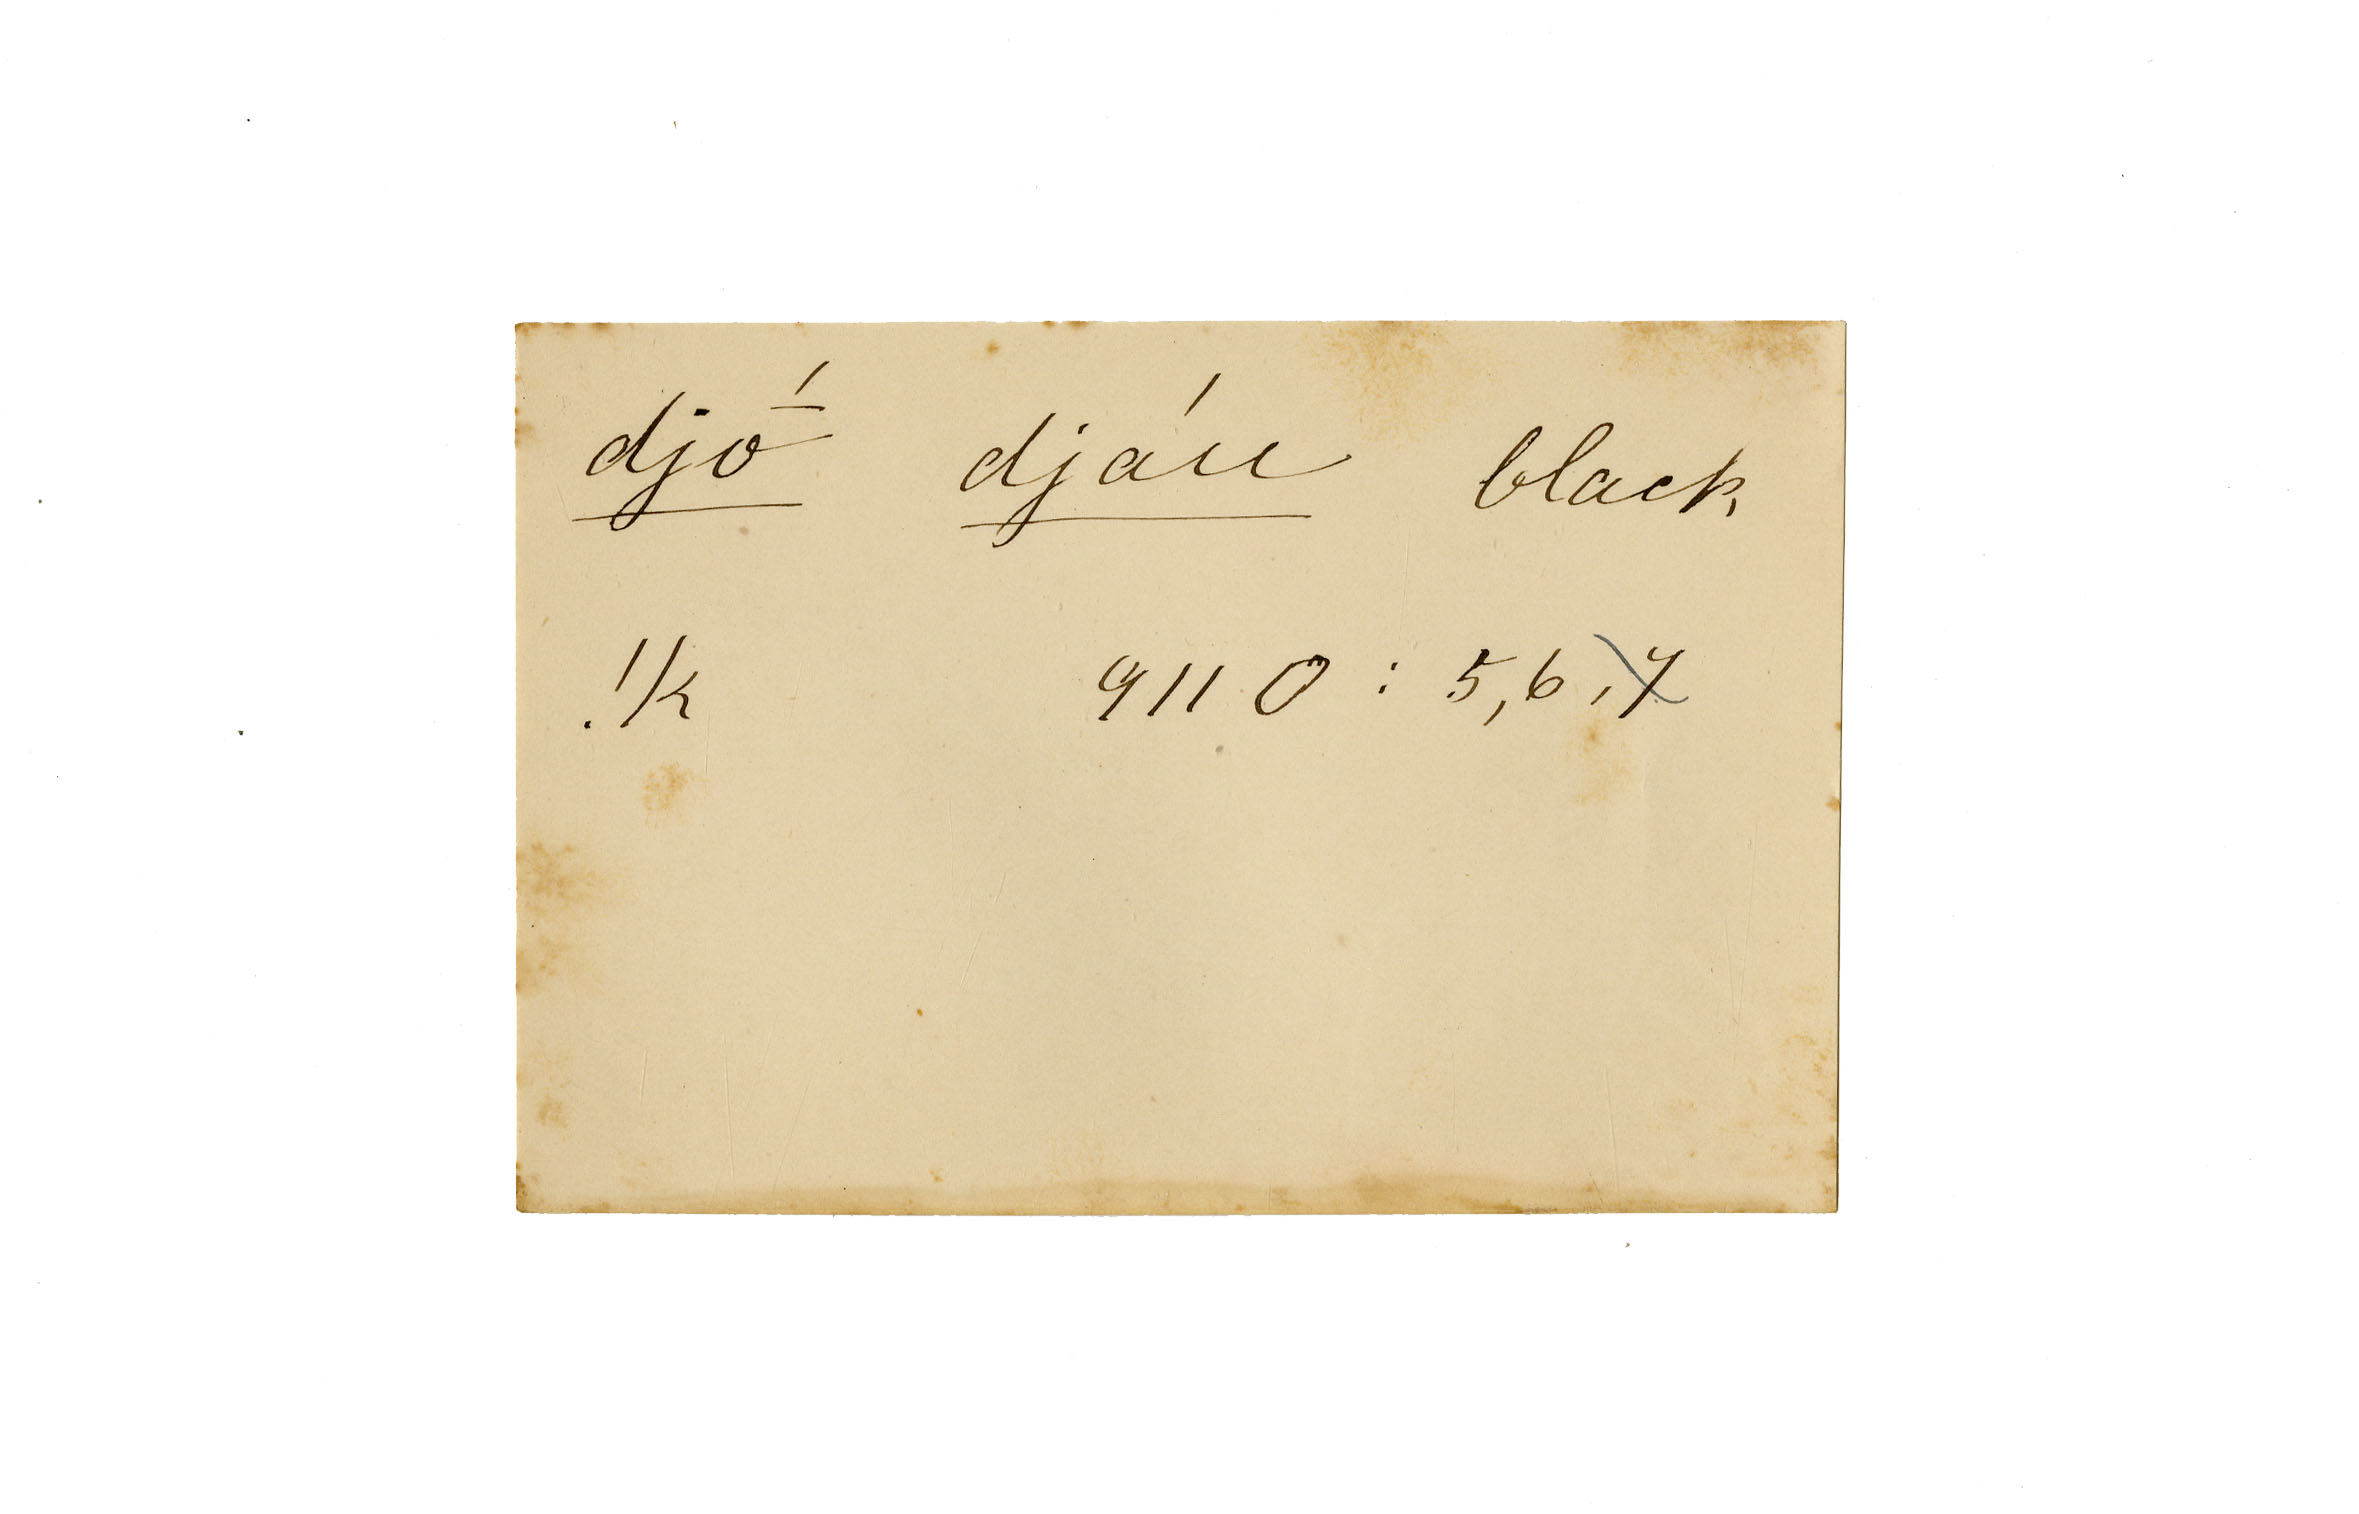 djṓ djáu black
!/k 9110 : 5,6,7